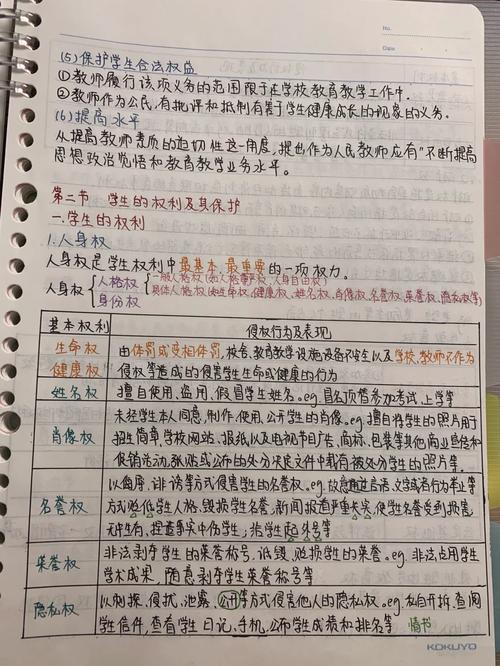 No.
Date
(5)保护学生合法权益
①教师履行该项义务的范围限于在学校教育教学工作中.
②教师作为公民,有批评和抵制有害于学生健康成长的现象的义务.
(6)提高水平
从提高教师素质的迫切性这一角度,提出作为人民教师应有"不断提高
思想政治觉悟和教育教学业务水平。
第二节 学生的权利及其保护
一.学生的权利
1.人身权
人身权是学生权利中最基本、最重要的一项权力。
人身权
人格权
一般人格权(如人格尊严权、人身自由权)
具体人格权(如生命权、健康权、姓名权、肖像权、名誉权、荣誉权、隐私权等)
身份权
基本权利 侵权行为及表现
生命权 由体罚或变相体罚,校舍、教育教学设施设备不安全以及学校、教师不作为
健康权 侵权等造成的侵害学生生命或健康的行为
姓名权 擅自使用、盗用、假冒学生姓名。eg.冒名顶替参加考试、上学等
肖像权 未经学生本人同意,制作、使用、公开学生的肖像。eg.擅自将学生的照片用于
招生简章、学校网站、报纸以及电视节目广告、商标、包装等其他商业宣传和
促销活动,张贴或公布的处分决定文件中载有被处分学生的照片等.
名誉权 以侮辱、诽谤等方式侵害学生的名誉权。eg.故意通过言语、文字或者行为等
方式贬低学生人格、毁损学生名誉,新闻报道严重失实,使学生名誉受到损害,
无中生有、捏造事实中伤学生;给学生起外号等
荣誉权 非法剥夺学生的荣誉称号、诋毁、贬损学生的荣誉。eg.非法占用学生
学术成果,随意剥夺学生荣誉称号等
隐私权 以刺探、侵扰、泄露、公开等方式侵害他人的隐私权。eg.私自开拆、查阅
学生信件,查看学生日记、手机,公布学生成绩和排名等 情书
KOKUYO